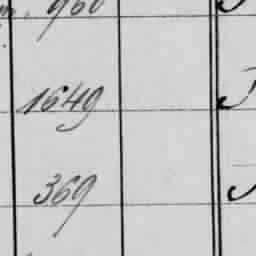 960
1649
369